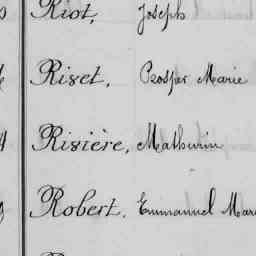 Riot, Joseph
Rivet, Prosper Marie
Rivière, Mathurin
Robert, Emmanuel Mari